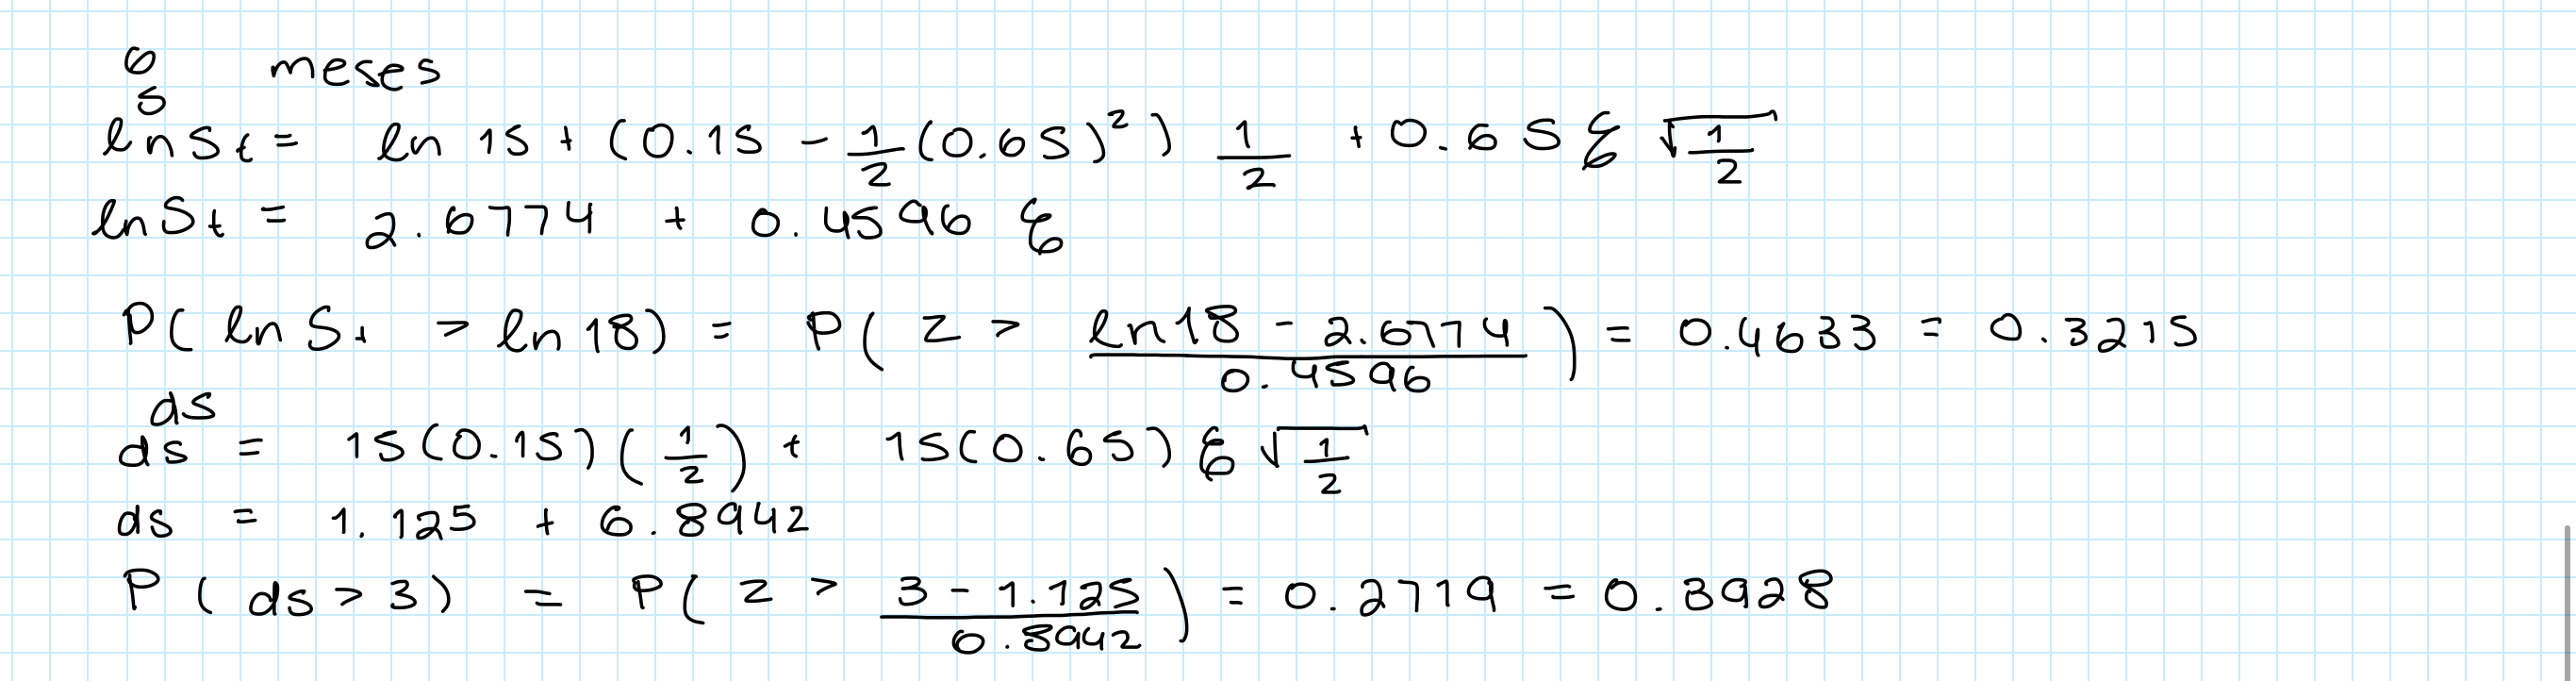 6 meses
S
ln St = ln 15 + (0.15 - 1/2 (0.65)²) 1/2 + 0.65 ξ √1/2
ln St = 2.6774 + 0.4596 ξ
P( ln St > ln 18) = P( Z > (ln 18 - 2.6774)/0.4596 ) = 0.4633 = 0.3215
ds
ds = 15(0.15)(1/2) + 15(0.65) ξ √1/2
ds = 1.125 + 6.8942
P ( ds > 3) = P( Z > (3 - 1.125)/6.8942 ) = 0.2719 = 0.3928